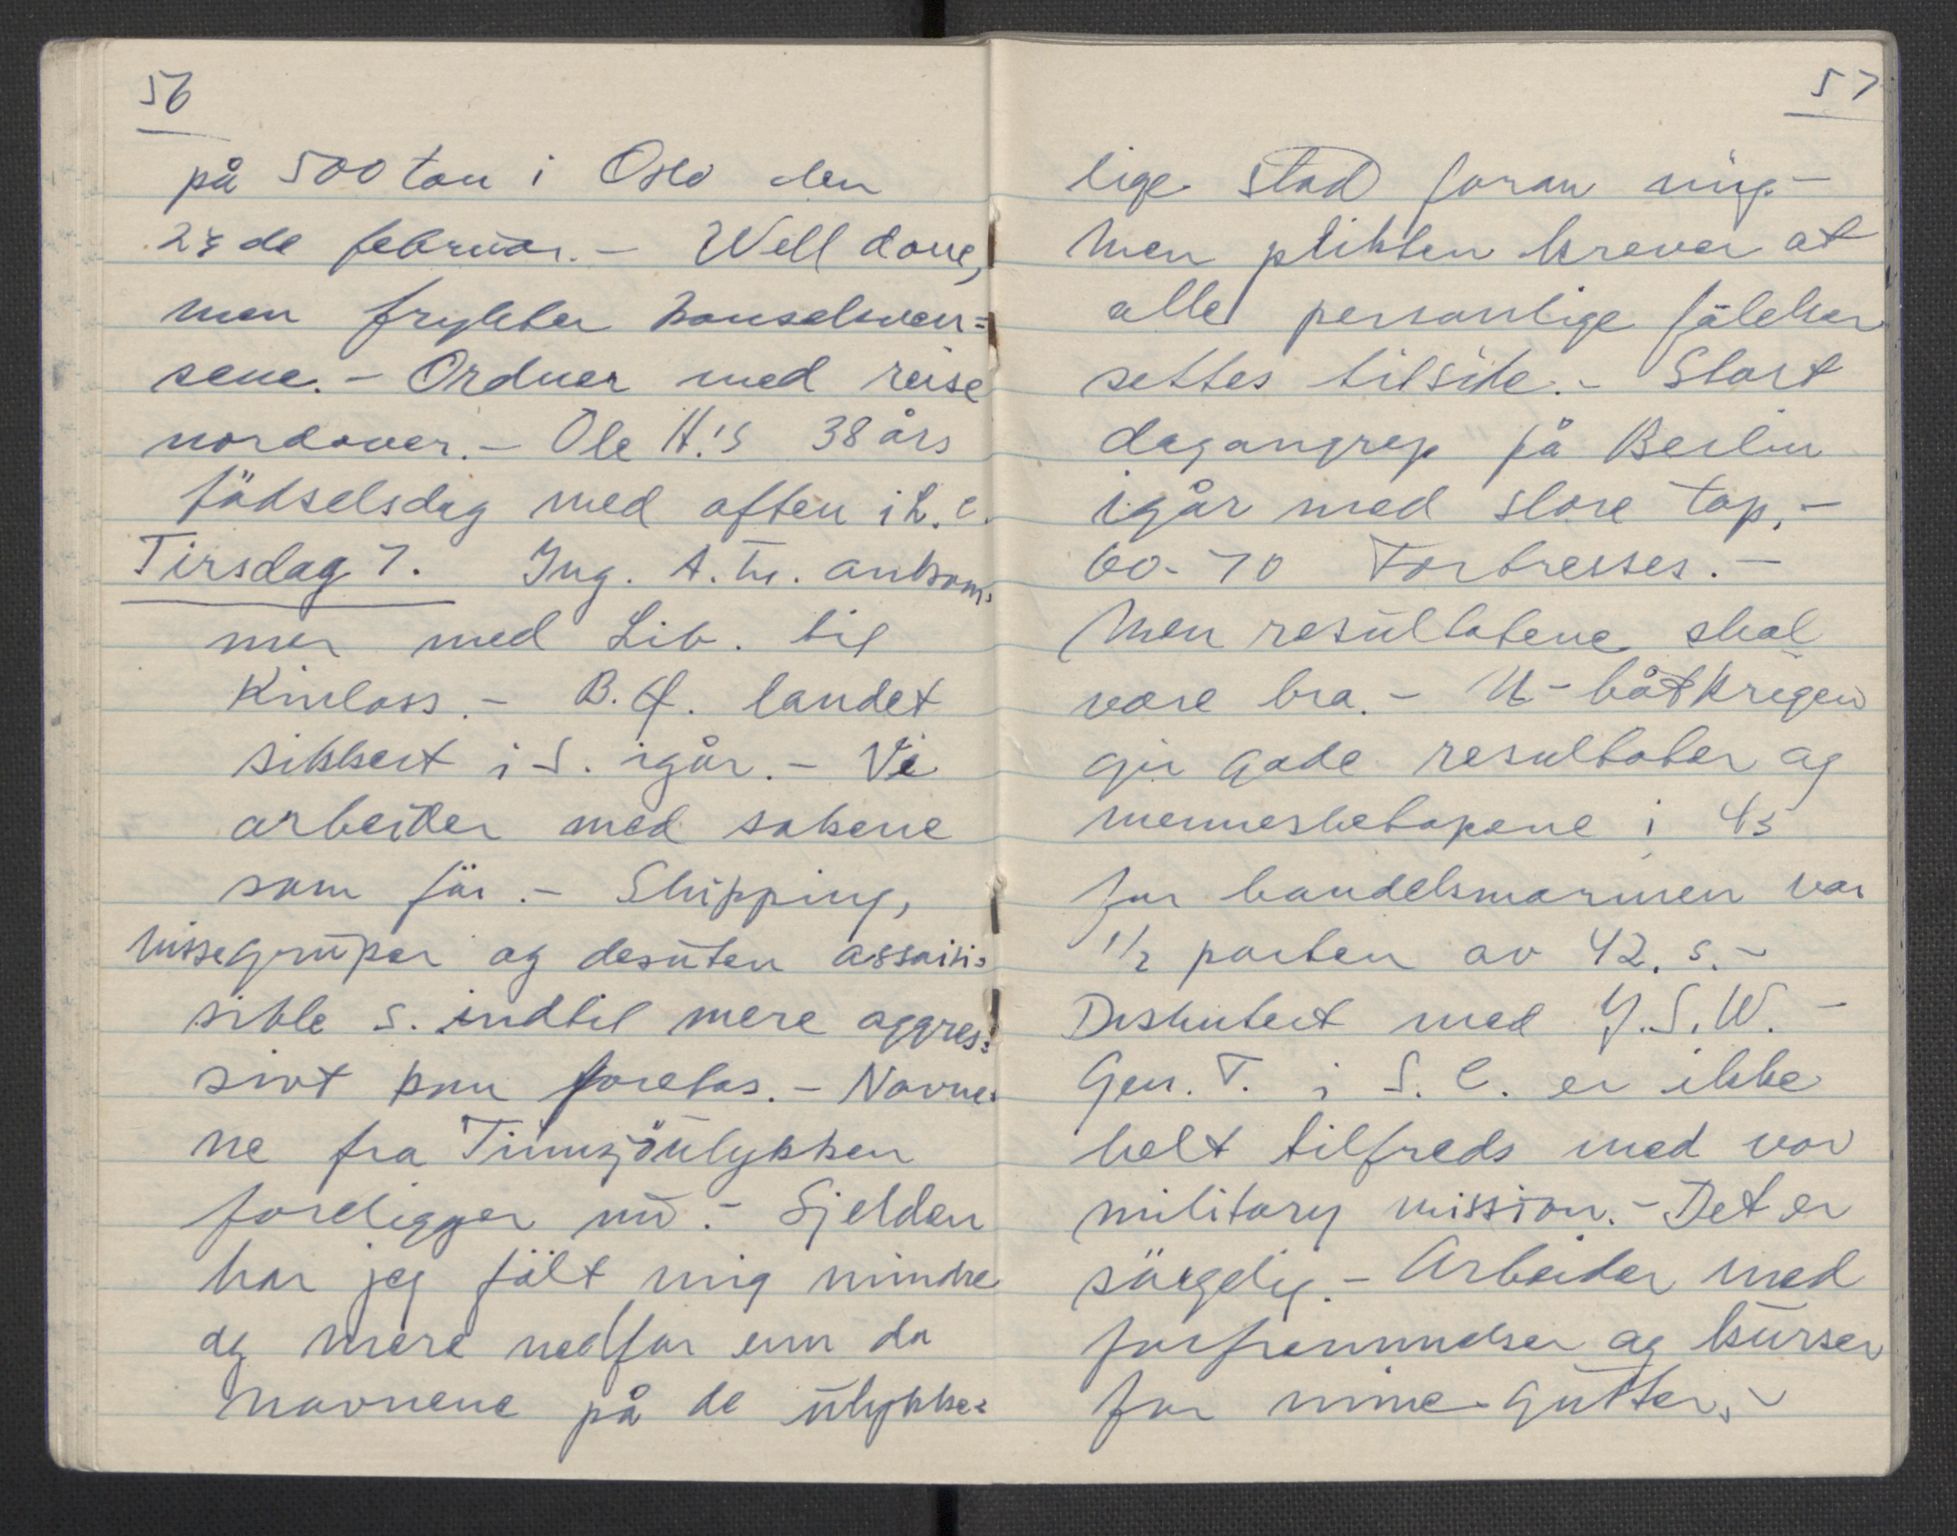 56
på 500 ton i Oslo den
de februar. - Well done,
men frykter konsekven=
sene. - Ordner med reise
nordover. - Ole H.'s 38 års
födselsdag med aften i L.C.
Tirsdag 7. Ing. A. Tr. ankom=
mer med Lib. til
Kinloss. - B. landet
sikkert i S. igår. - Vi
arbeider med sakene
som för. - Shipping,
nissegrüper og desüten
S. indtil mere aggres=
sivt kan foretas. - Navne=
ne fra Tinnsjöulykken
foreligger nü. - Sjelden
har jeg fölt mig mindre
og mere nedfor enn da
navnene på de ülykke=
57
lige stod foran mig. -
Men plikten krever at
alle personlige fölelser
settes tilside. - Stort
dagangrep på Berlin
igår med store tap, -
60-70 Fortresses. -
Men resültatene skal
være bra. - U-båtkrigen
gir gode resultater og
mennesketapene i 43
for handelsmarinen var
1/2 parten av 42.s. -
Diskutert med J.S.W. -
Gen. T. i S.C. er ikke
helt tilfreds med vor
military mission. - Det er
sörgelig. - Arbeider med
forfremmelser og kürser
for mine gütter. -